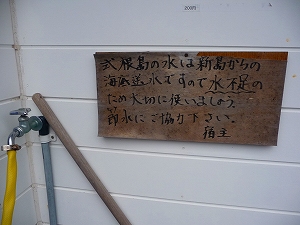 200円
式根島の水は新島からの
海底送水ですので水不足の
ため大切に使いましょう。
節水にご協力下さい。
宿主